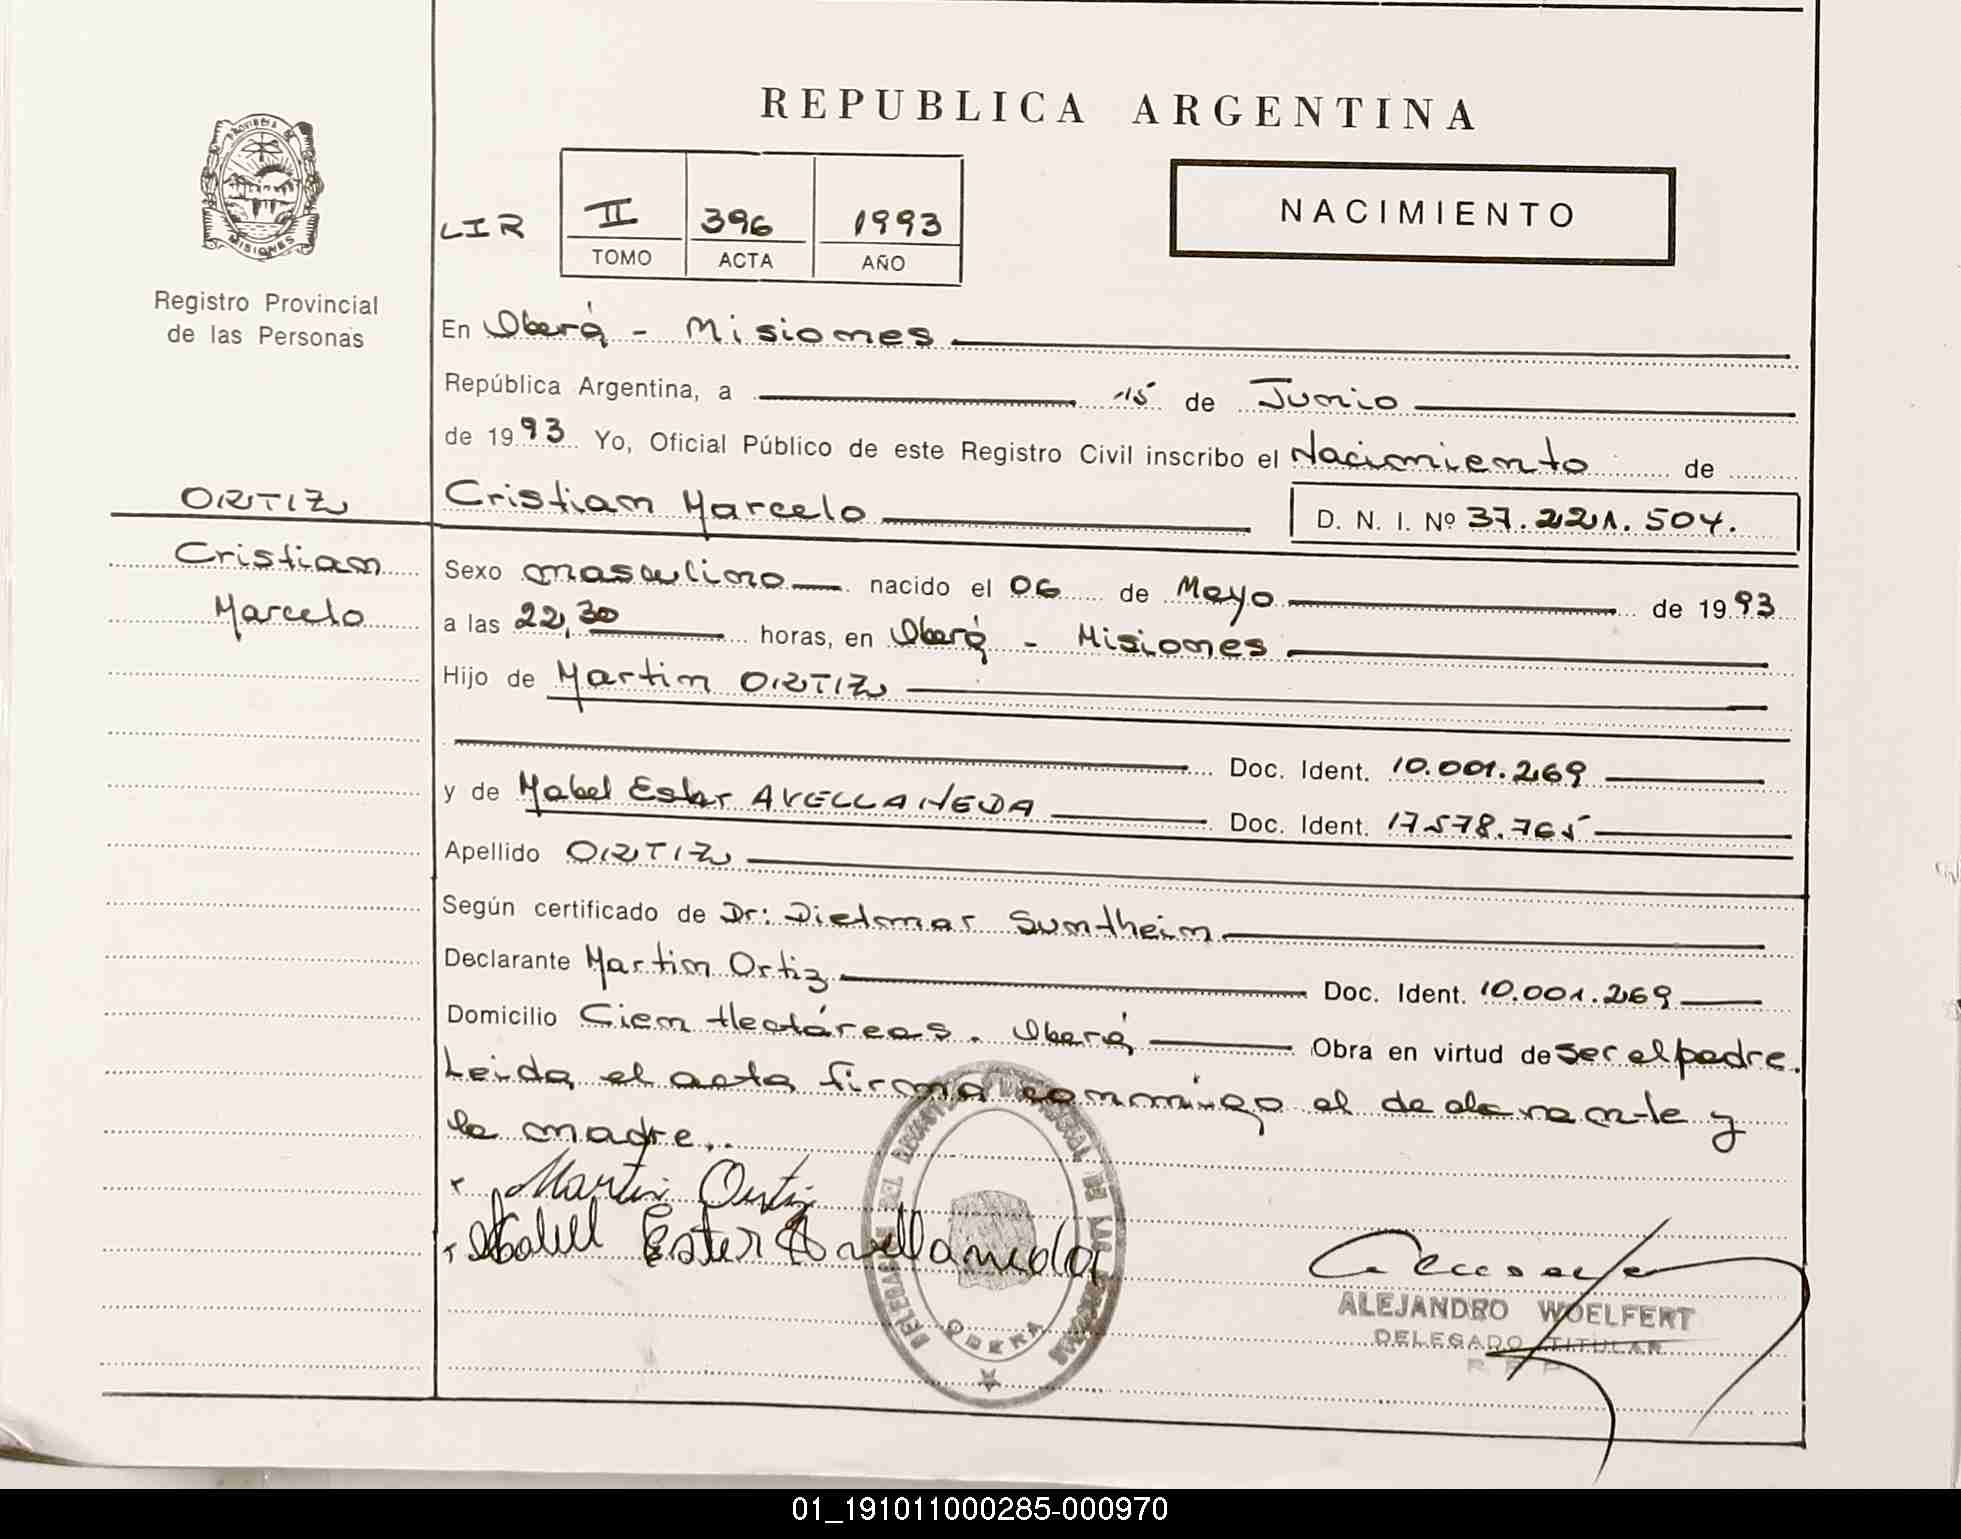 REPUBLICA ARGENTINA
PROVINCIA DE
MISIONES
Registro Provincial
de las Personas
LIR
II 396 1993
TOMO ACTA AÑO
NACIMIENTO
En Oberá - Misiones
República Argentina, a 15 de Junio
de 1993 Yo, Oficial Público de este Registro Civil inscribo el Nacimiento de
ORTIZ
Cristian
Marcelo
Cristian Marcelo D. N. I. Nº 37.221.504.
Sexo masculino nacido el 06 de Mayo de 1993
a las 22,30 horas, en Oberá - Misiones
Hijo de Martin ORTIZ
Doc. Ident. 10.001.269
y de Mabel Ester AVELLANEDA Doc. Ident. 17.578.765
Apellido ORTIZ
Según certificado de Dr: Dietmar Suntheim
Declarante Martin Ortiz Doc. Ident. 10.001.269
Domicilio Cien Hectáreas. Oberá Obra en virtud de ser el padre.
Leida el acta firma conmigo el declarante y
la madre..
Martin Ortiz
Mabel Ester Avellaneda
DELEGACION DEL REGISTRO PROVINCIAL DE LAS PERSONAS
OBERA
ALEJANDRO WOELFERT
DELEGADO TITULAR
R P P
01_191011000285-000970